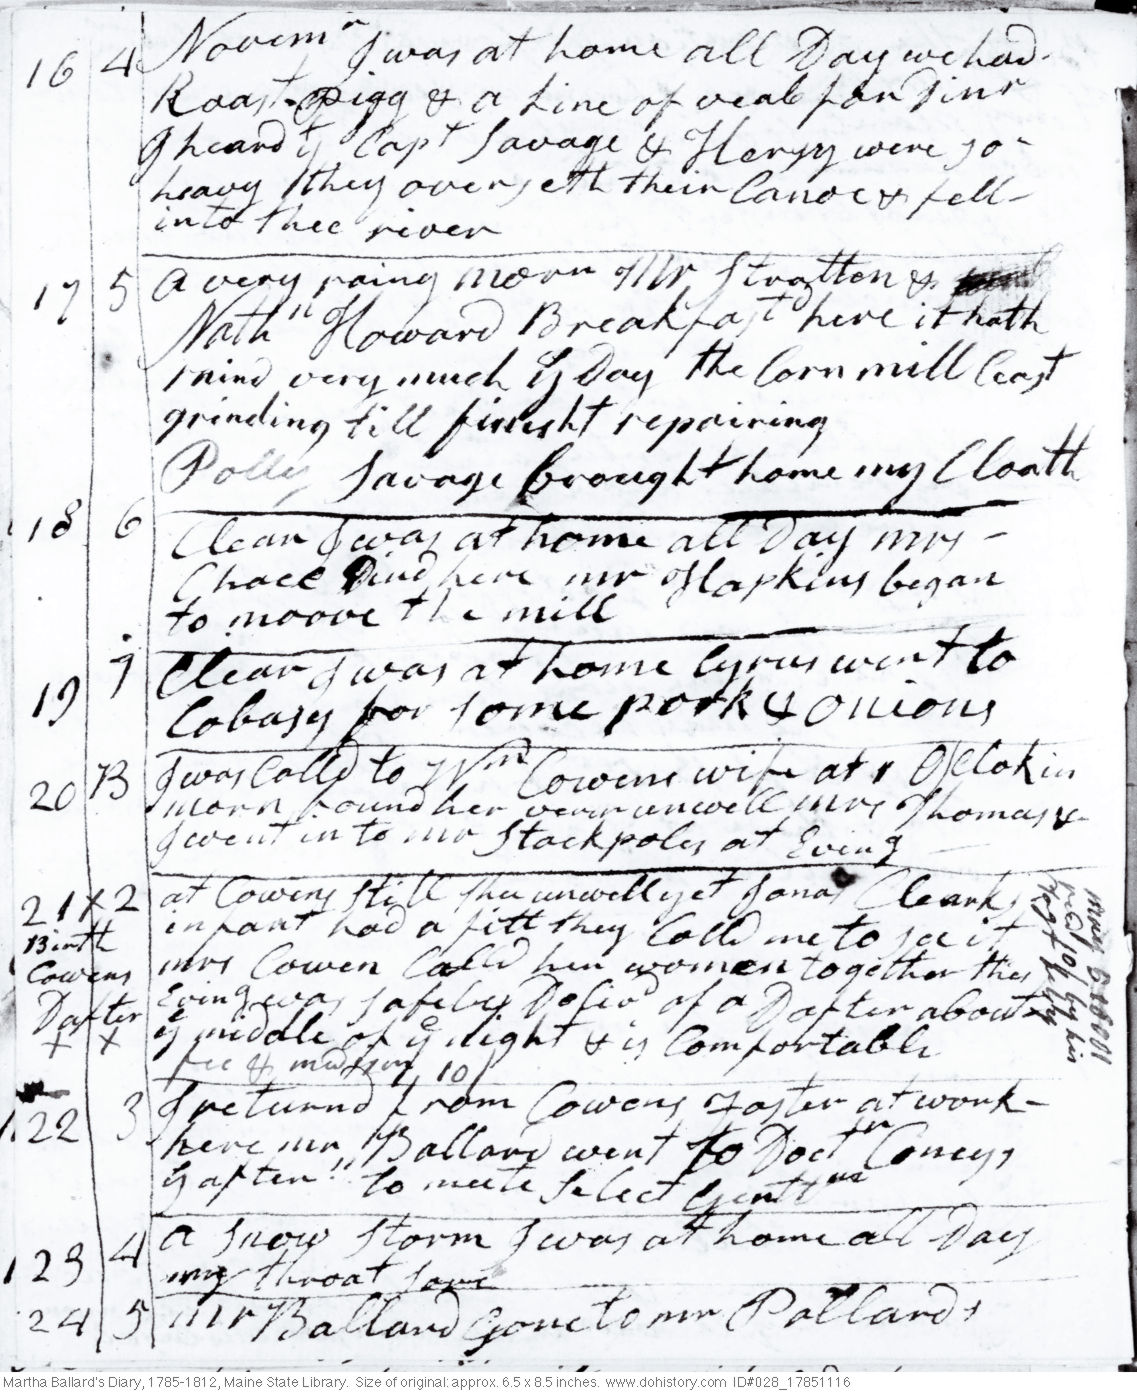 Novemr
16 4 I was at home all Day we had
Roast pigg & a Line of veal for Dinr
I heard yt Capt Savage & Hersy were so
heavy they over seth their Canoe & fell
into thee river
17 5 a very raing morn Mr Stratten &
Nathll Howard Breakfastd here it hath
raind very much ys Day the Corn mill Ceast
grinding till finesht repairing
Polly Savage brought home my Cloath
18 6 Clear I was at home all Day mrs
Chace Dind here mr Hapkins began
to moove the mill
19 7 Clear I was at home Cyrus went to
Cobasys for some pork & onions
20 B I was Calld to Wm Cowens wife at 1 O Clok in
morn found her verry unwell mrs Thomas &
I went in to mr Stackpoles at Eving
21 x 2 at Cowens Still Shee unwell yet Jonas Clearks
infant had a fitt they Calld me to see it
mrs Cowen Calld her women together this
Eving was safely Delivd of a Dafter about
ye middle of ye night & is Comfortable
fee & medisin 10/
Birth
Cowens
Dafter
+ x
22 3 I returnd from Cowens Foster at work
here mr Ballard went to Doctr Conys
ys aftern to meete Select Gentlms
23 4 a Snow Storm I was at home all Day
my throat sore
24 5 mr Ballard Gone to mr Pollards
Martha Ballard's Diary, 1785-1812, Maine State Library. Size of original: approx. 6.5 x 8.5 inches. www.dohistory.com ID#028_17851116